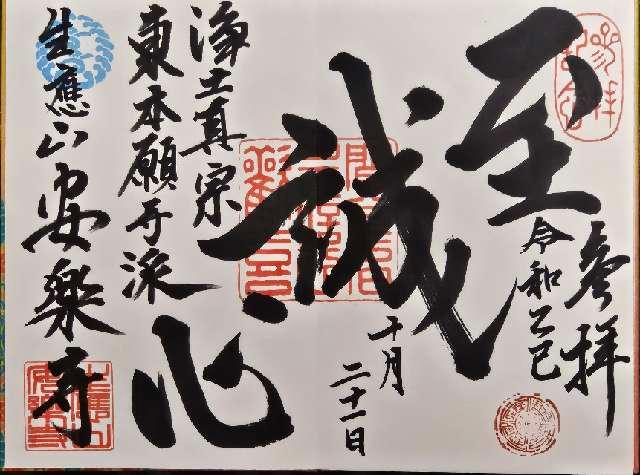 参拝
令和乙巳
十月
二十一日
至誠心
浄土真宗
東本願寺派
生應山安樂寺